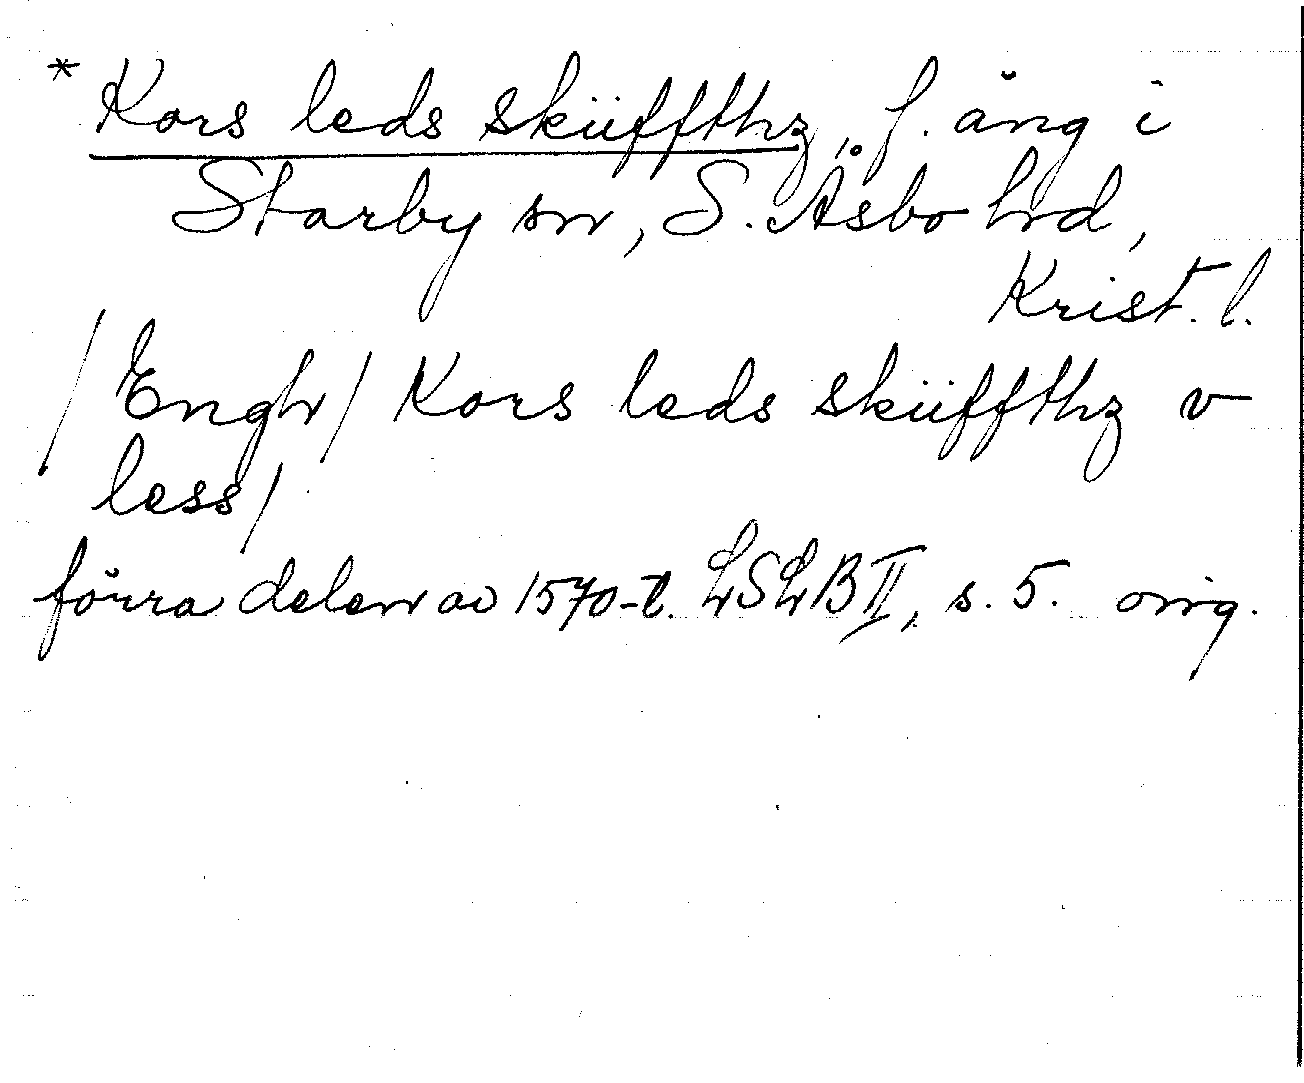 * Kors leds sküffthz, f. äng i
Starby sn, S. Åsbo hrd,
Krist. l.
/Engh/ Kors leds sküffthz v
less/
förra delen av 1570-t. LSLB II, s. 5. orig.